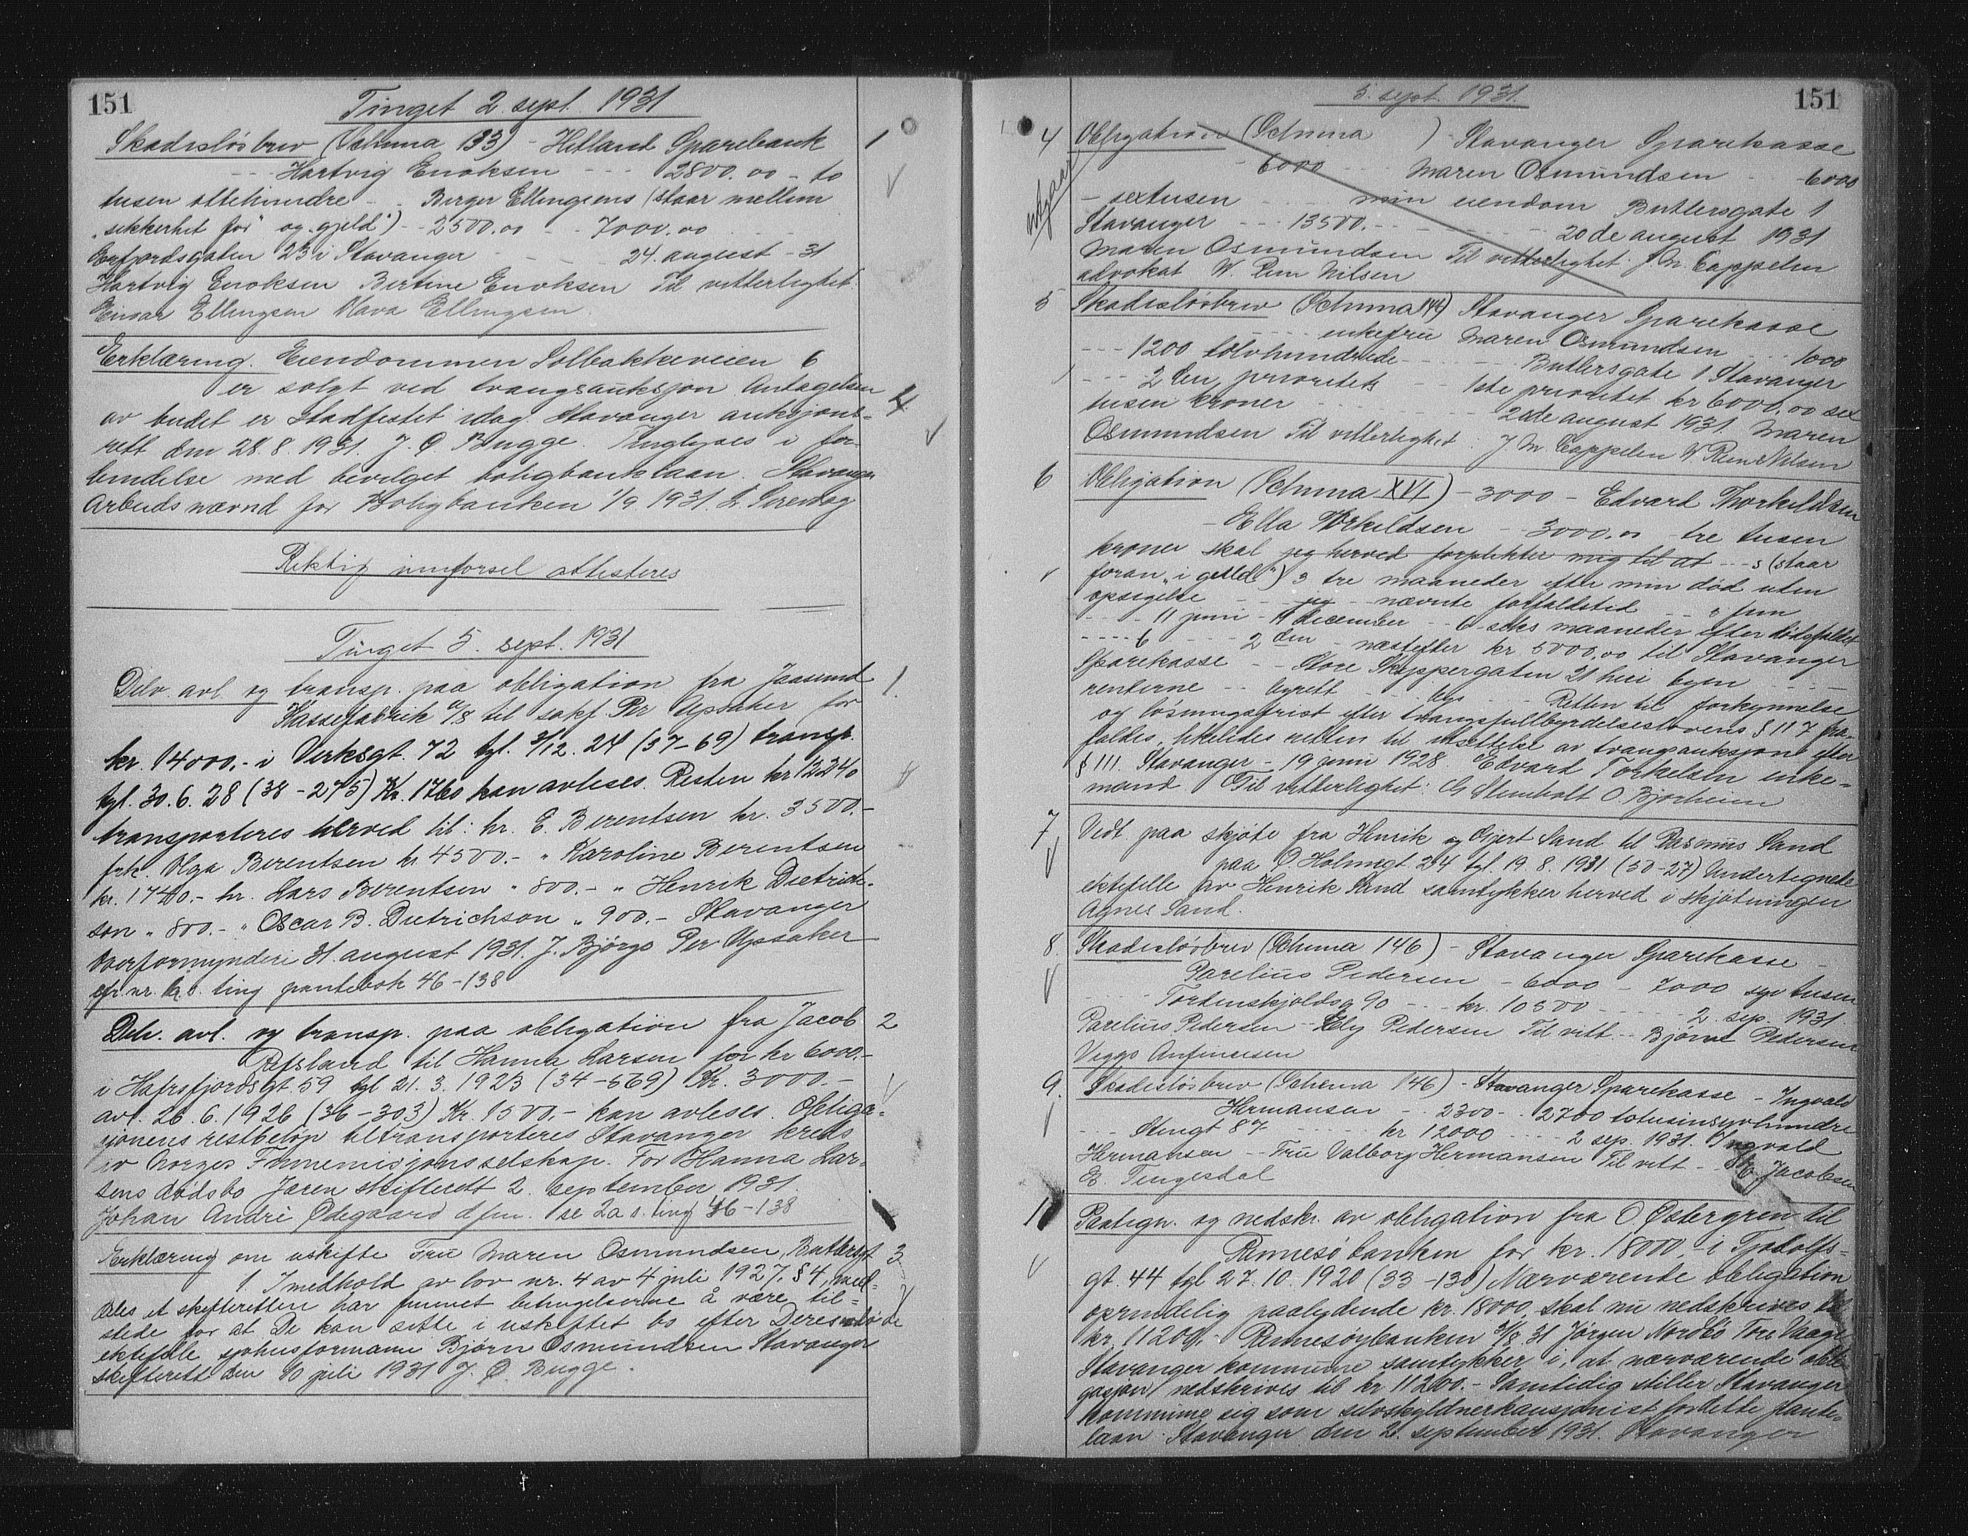 151
Tinget 2. sept. 1931
Skadesløsbrev (Schema 133) - Hetland Sparebank 1
-- Hartvig Enoksen --- 2800.00 - to
tusen ottehundre -- Berger Ellingsens (staar mellem
"sikkerhet for" og "gjeld") - 2500.00 -- 7000.00
Erfjordsgaten 23 i Stavanger - - - 24. august - 31
Hartvig Enoksen Bertine Enoksen Til vitterlighet:
Einar Ellingsen Ellingsen.
Erklæring. Eiendommen Solbakkeveien 6
er solgt ved tvangsauksjon Antagelsen 2
av budet er stadfestet idag Stavanger auksjons-
rett den 28.8.1931. J. Q. Bugge. Tinglyses i for-
bindelse med bevilget boligbanklaan. Stavanger
Arbeidsnævnd for Boligbanken 1/9 1931.
Riktig innførsel attesteres
Tinget 5. sept. 1931
Delv. avl. og transp. paa obligation fra Jaasund 1.
Kassefabrik a/s til sakf. Per Upsaker for
kr. 14000.- i Verksgt. 72 tgl. 3/12. 24 (37-69) transp.
tgl. 30.6.28 (38-275) Kr. 1760 kan avleses. Resten kr 12240
transporteres herved til: hr. E. Berentsen kr. 3500.-
frk. Olga Berentsen kr. 4500.- " Karoline Berentsen
kr. 1740.- hr. Lars Berentsen " 800.- " Henrik Dietrich-
son " 800.- " Oscar B. Dietrichson " 900.- Stavanger
Overformynderi 31 august 1931. J. Bjørge Per Upsaker
cfr nr. s. ting pantebok 46-138
Delv. avl. og transp. paa obligation fra Jacob 2
Refsland til Hanna Larsen for kr 6000.-
i Hafrsfjordsgt 59 tgl 21.3.1923 (34-569) Kr. 3000.-
avl. 26.6.1926 (36-303) Kr. 1500.- kan avleses. Obliga-
sjonens restbeløp tiltransporteres Stavanger kreds
av Norges Finnemisjonsselskap. For Hanna Lar-
sens dødsbo Jæren skifterett 2. september 1931
Johan André Ødegaard dfm. se 2a s. ting 46-138
Erklæring om uskifte Fru Maren Osmundsen, Butlersgt 3
1. I medhold av lov nr. 4 av 4 juli 1927, §4, med-
deles at skifteretten har funnet betingelserne å være til-
stede for at De kan sitte i uskiftet bo efter Deres døde
ektefelle sjøhusformann Bjørn Osmundsen Stavanger
skifterett den 10 juli 1931 J. Q. Bugge.
5. sept. 1931. 151
4 Obligation (Schema ) - Stavanger Sparekasse
utgaar - 6000 - - - Maren Osmundsen - - 6000
- sextusen - - - min eiendom Butlersgate 1
Stavanger - - - 13500. - - - - 20de august 1931
Maren Osmundsen Til vitterlighet: J. M. Cappelen
advokat W. Riim Nilsen
5 Skadesløsbrev (Schema 144) Stavanger Sparekasse
- - - enkefrue Maren Osmundsen - - - 1000
- - - 1200 tolvhundrede - - - Butlersgate 1 Stavanger
- - - 2den prioritet - - 1ste prioritet kr 6000,00 sex
tusen kroner - - - 20de august 1931. Maren
Osmundsen Til vitterlighet: J M Cappelen W Riim Nilsen
6 Obligation (Schema XVI) - 3000 - Edvard Thorkildsen
- Ella Thorkildsen - 3000.00 tre tusen
kroner skal jeg herved forplikter mig til at - - s (staar
foran "i gjeld") 3 tre maaneder efter min død uten
opsigelse - - jeg - - nævnte forfaldstid - - 5 fem
- - - 11 juni - 11 december - - 6 seks maaneder efter dødsfaldet
- - - - 6 - - - 2den - næstefter kr 5000,00 til Stavanger
Sparekasse - - Store Skippergaten 21 her i byen - - -
renterne - - byrett - - - by - - - Retten til forkyndelse
og løsningsfrist efter tvangsfullbyrdelseslovens § 117 fra-
faldes, likeledes retten til utsettelse av tvangsauksjon efter
§ 111. Stavanger - 19 juni 1928 Edvard Torkelsen enke-
mand Til vitterlighet: G Stenbolt O. Bjorheim
7 Vedt. paa skjøte fra Henrik og Gjert Sand til Rasmus Sand
paa O Holmegt 24 tgl 19.8.1931 (50-27) Undertegnede
ektefelle av Henrik Sand samtykker herved i skjøtningen
Agnes Sand.
8. Skadesløsbrev (Schema 146) - Stavanger Sparekasse -
Parelius Pedersen - 6000 - 7000 syv tusen
- - Tordenskjoldsg 90 - - kr. 10500 - - - - 2. sep. 1931.
Parelius Pedersen - Elly Pedersen Til vitt - - Bjørne Pedersen
Viggo Anfinnsen
9. Skadesløsbrev (Schema 146) - Stavanger Sparekasse - Ingvald
Hermansen - - 2300 - - 2700 totusinsyvhundre
- - Stengt 87 - - - kr 12000 - - - - 2 sep. 1931. Ingvald
Hermansen - - Fru Valborg Hermansen Til vitt - - Jacobsen
E. Tengesdal
10 Paategn. og nedskr. av obligation fra O Østergren til
Rennesøbanken for kr. 18000.- i Tjodolfs-
gt. 44 tgl 27.10.1920 (33-130) Nærværende obligation
oprindelig paalydende kr. 18000 skal nu nedskrives til
kr. 11200.- Rennesøybanken 31/8 31 Jørgen Nordbø Tore Vaage
Stavanger kommune samtykker i, at nærværende obli-
gasjon nedskrives til kr 11200.- Samtidig stiller Stavanger
kommune sig som selvskyldnerkausjonist for dette pante-
laan. Stavanger den 2. september 1931. Stavanger